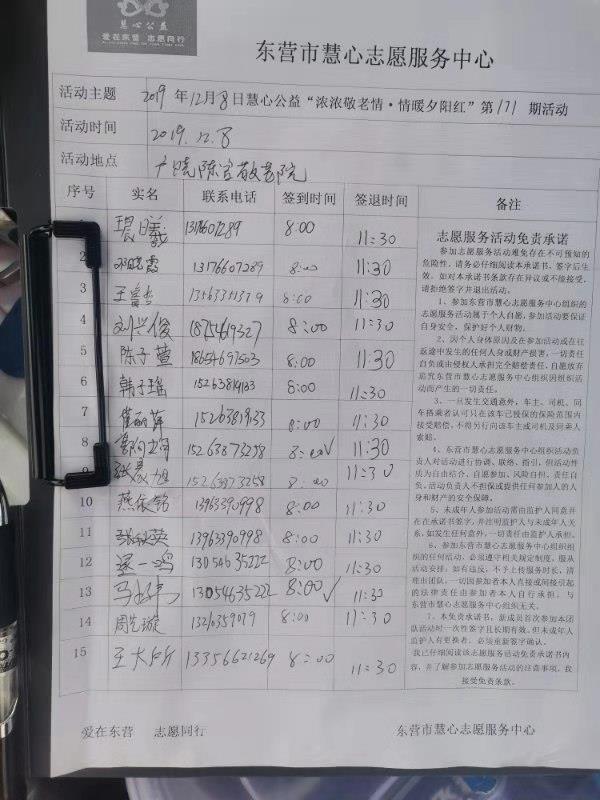 慧心公益
爱在东营 志愿同行
东营市慧心志愿服务中心
活动主题 2019年12月8日慧心公益“浓浓敬老情·情暖夕阳红”第171期活动
活动时间 2019.12.8
活动地点 广饶陈官敬老院
序号 实名 联系电话 签到时间 签退时间 备注
8:00 11:30
2 13176607289 8:00 11:30
3 8:00 11:30
4 刘兴俊 8:00 11:30
5 陈子萱 18654691503 8:00 11:30
6 15263819133 8:00 11:30
7 15263819133 8:00 11:30
8 15263873258 8:00√ 11:30
9 15263873258 8:00 11:30
10 燕依铭 13963390998 8:00 11:30
11 13963390998 8:00 11:30
12 13054635222 8:00 11:30
13 13054635222 8:00√ 11:30
14 周艺璇 8:00 11:30
15 13356621269 8:00 11:30
志愿服务活动免责承诺
参加志愿服务活动难免存在不可预知的
危险性，请务必仔细阅读本承诺书，签字后生
效。如对本承诺书条款存在异议或不能接受，
请拒绝签字并退出活动。
1、参加东营市慧心志愿服务中心组织的
志愿服务活动属于个人自愿，参加活动要保证
自身安全，保护好个人财物。
2、因个人身体原因及在参加活动或在往
返途中发生的任何人身或财产损害，一切责任
自负或由侵权人承担完全赔偿责任，自愿放弃
追究东营市慧心志愿服务中心组织因组织活
动而产生的一切责任。
3、一旦发生交通意外，车主、司机、同
车搭乘者认可只在该车已投保的保险范围内
接受赔偿，不得另行向该车主或司机及同乘人
索赔。
4、东营市慧心志愿服务中心组织活动负
责人对活动进行协调、联络、指引，但活动性
质为自由结合、自愿参加、风险自担、责任自
负。活动负责人不担保或提供任何参加人的人
身和财产的安全保障。
5、未成年人参加活动需由监护人同意并
在在承诺书签字，并注明监护人与未成年人关
系，如发生任何意外，一切责任由监护人承担。
6、参加东营市慧心志愿服务中心组织组
织的任何活动，必须遵守相关规定制度，服从
活动安排；如有违反，不予上传服务时长，清
理出团队。一切因参加者本人直接或间接引起
的法律责任由参加者本人自行承担，与
东营市慧心志愿服务中心组织无关。
7、本免责承诺书，新成员首次参加本团
队活动时一次性签字且长期有效。但未成年人
监护人有更换者，必须重新签字确认。
我已仔细阅读该志愿服务活动免责承诺书内
容，并了解参加志愿服务活动的注意事项，我
接受免责条款。
爱在东营 志愿同行 东营市慧心志愿服务中心